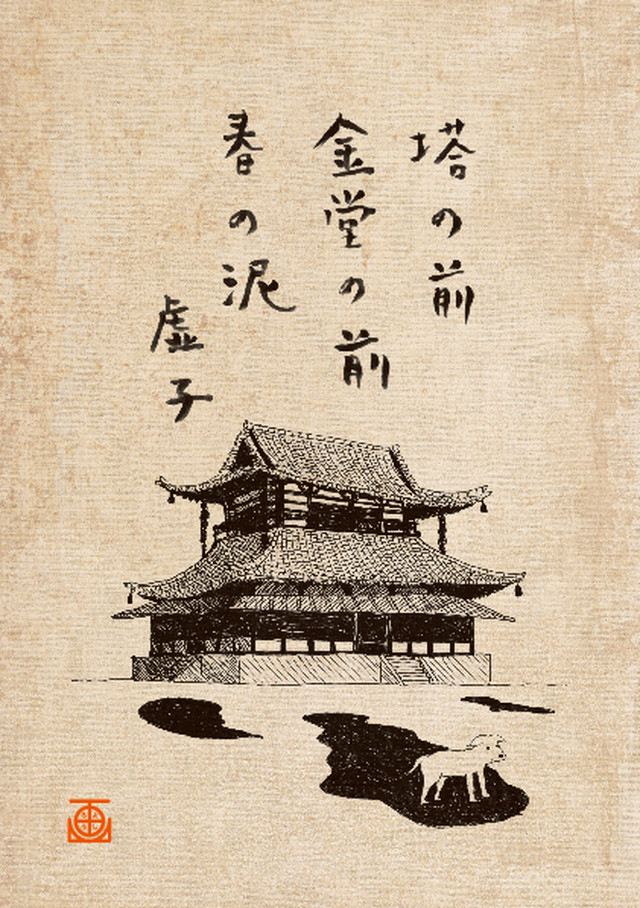 塔の前
金堂の前
春の泥
虚子